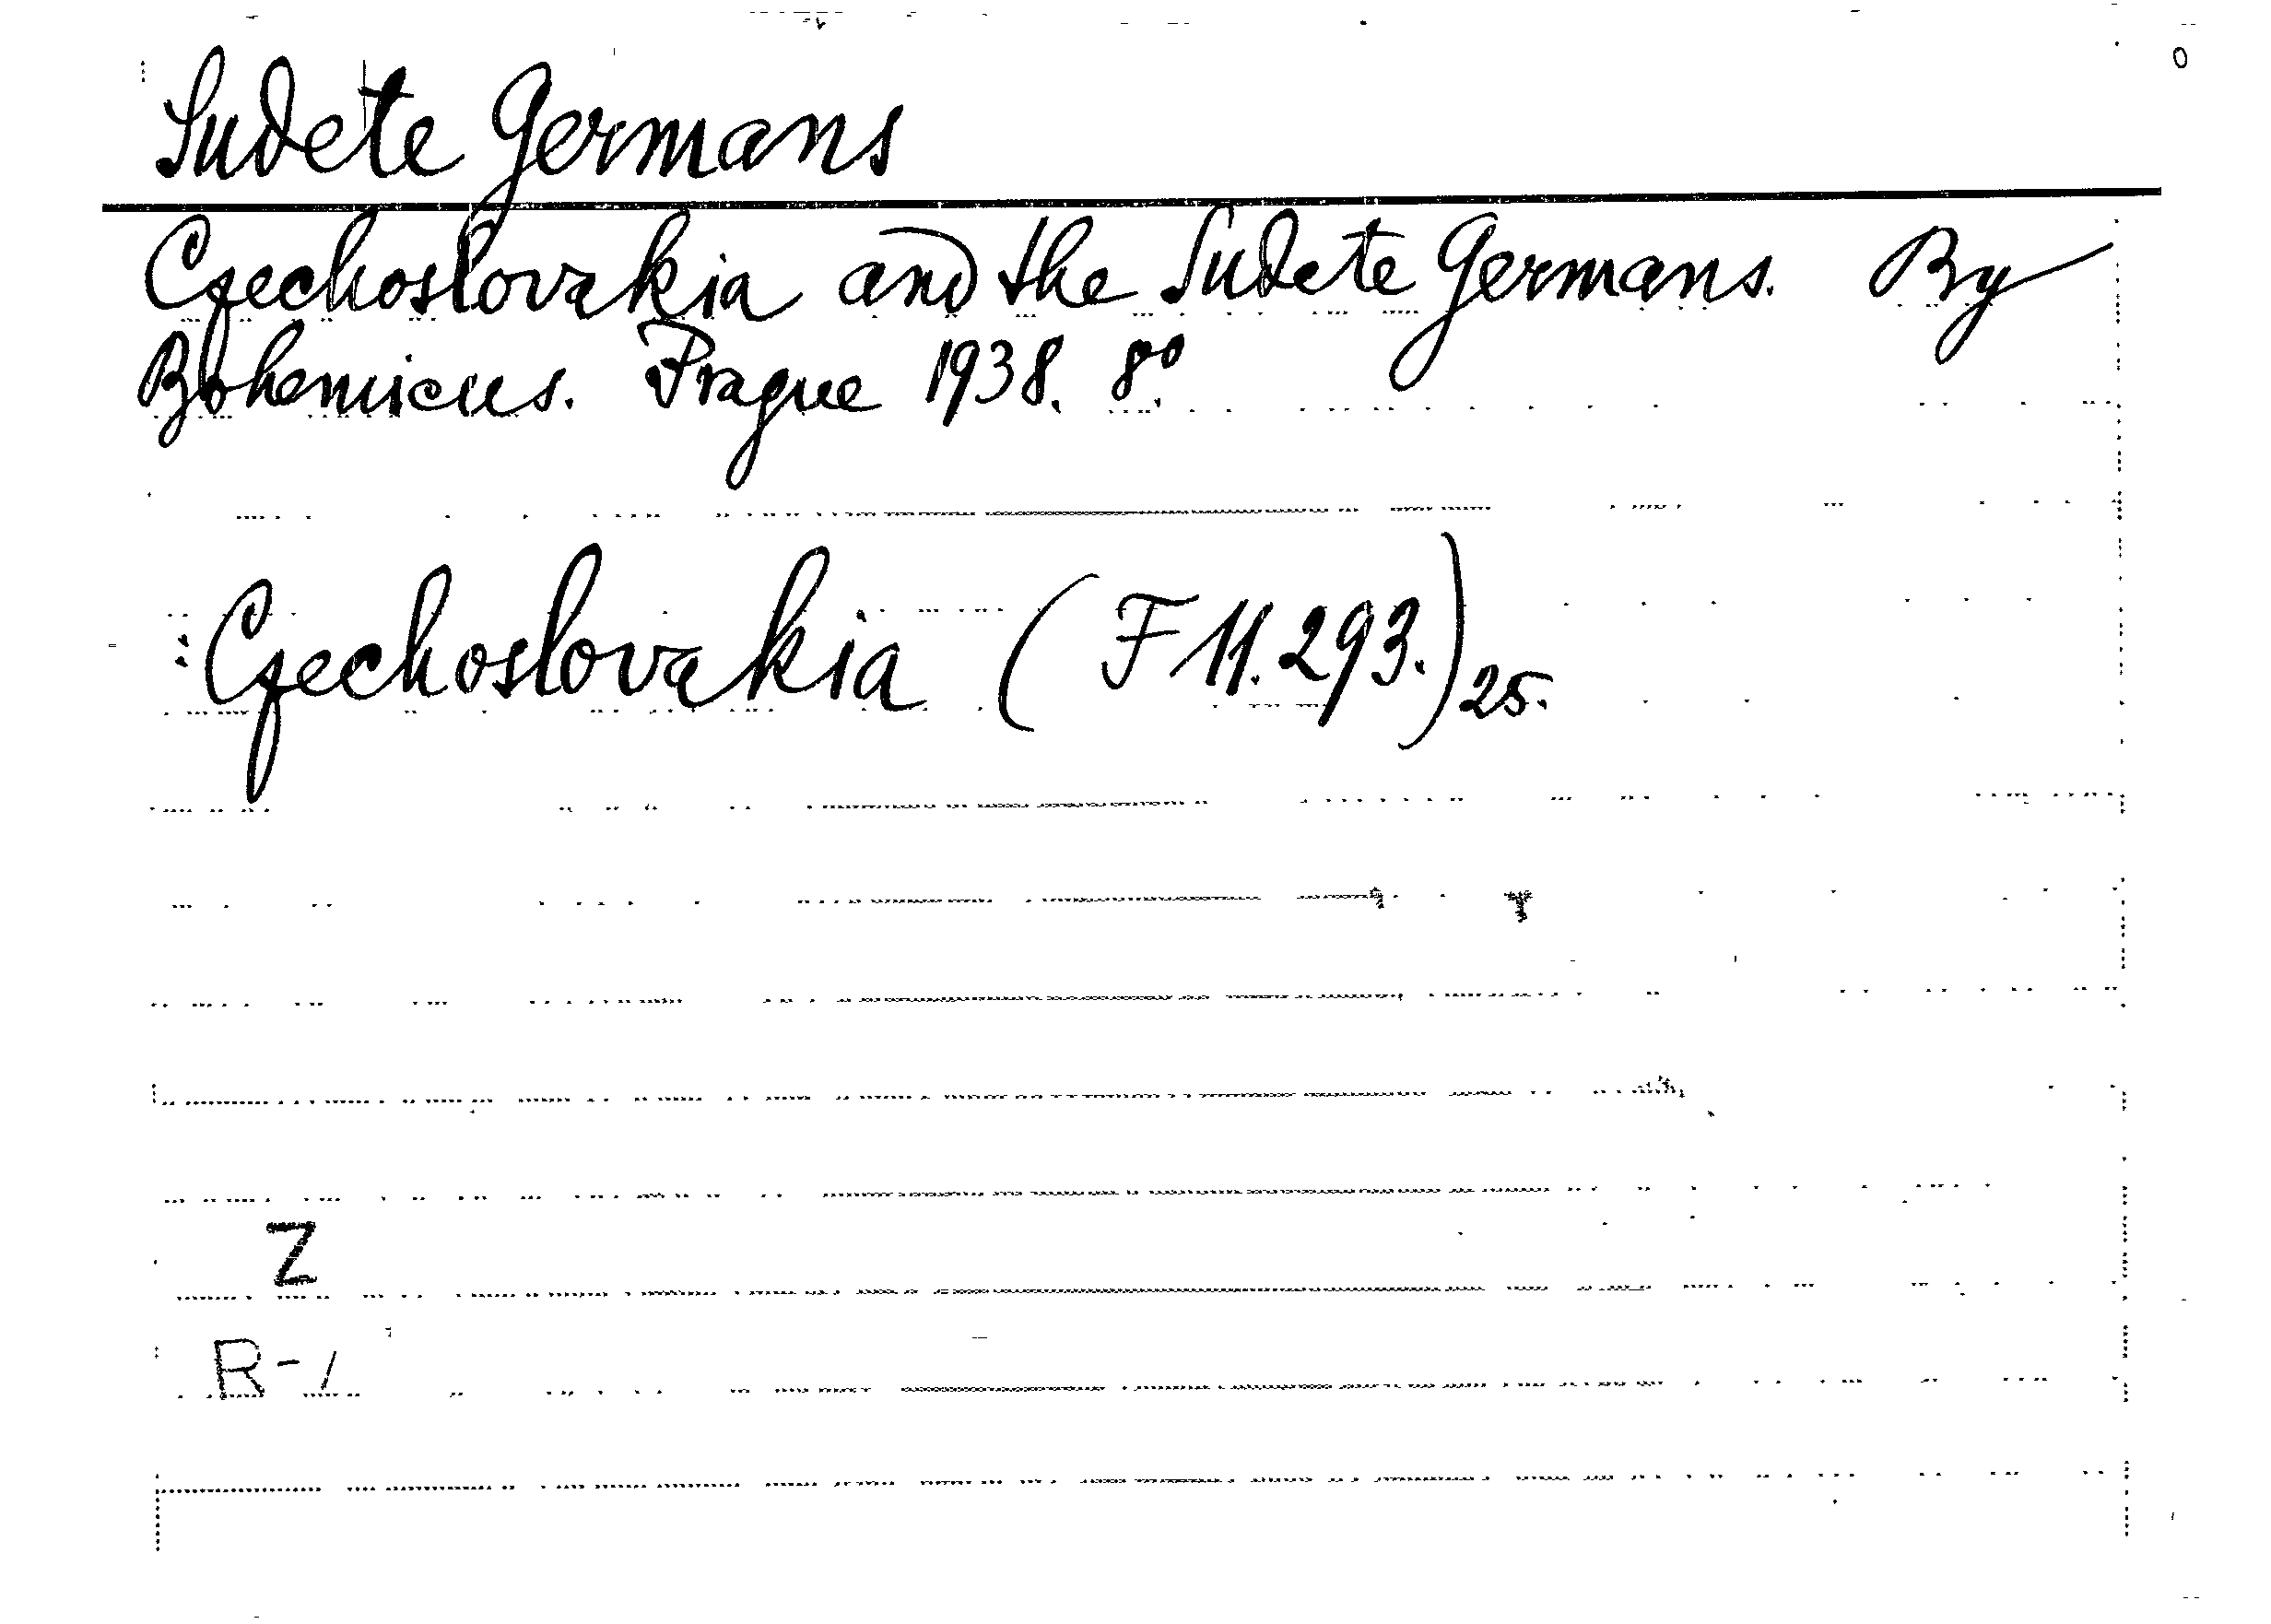 Sudete Germans
Czechoslovakia and the Sudete Germans. By
Bohemicus. Prague 1938. 8º.
: Czechoslovakia (F 11.293.) 25.
Z
R-1